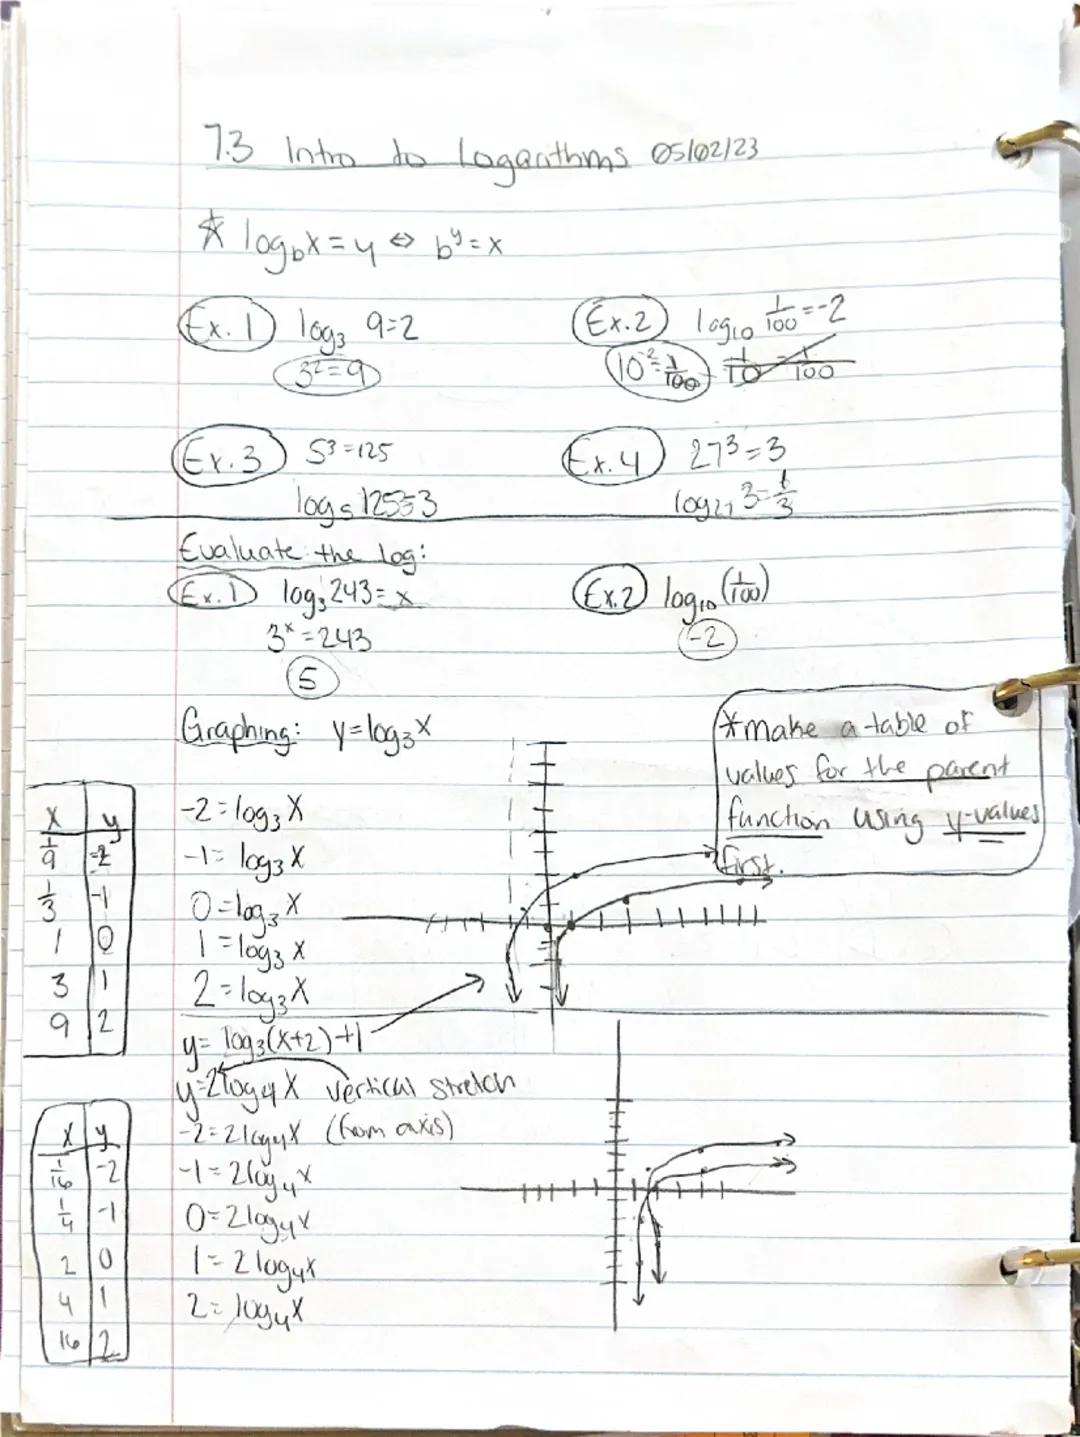 7.3 Intro to Logarithms 05/02/23
* log_b x = y ⇔ b^y = x
Ex. 1 log_3 9=2
3^2=9
Ex. 2 log_10 1/100 = -2
10^-2 = 1/100 1/10 - 1/100
Ex. 3 5^3=125
log_5 125=3
Ex. 4 27^3=3
log_27 3=1/3
Evaluate the log:
Ex. 1 log_3 243=x
3^x=243
5
Ex. 2 log_10 (1/100)
-2
Graphing: y=log_3 x
*make a table of
values for the parent
function using y-values
first.
x y
1/9 -2
1/3 -1
1 0
3 1
9 2
-2=log_3 x
-1=log_3 x
0=log_3 x
1=log_3 x
2=log_3 x
y=log_3(x+2)+1
y=2log_4 x vertical stretch
(from axis)
x y
1/16 -2
1/4 -1
2 0
4 1
16 2
-2=2log_4 x
-1=2log_4 x
0=2log_4 x
1=2log_4 x
2=log_4 x